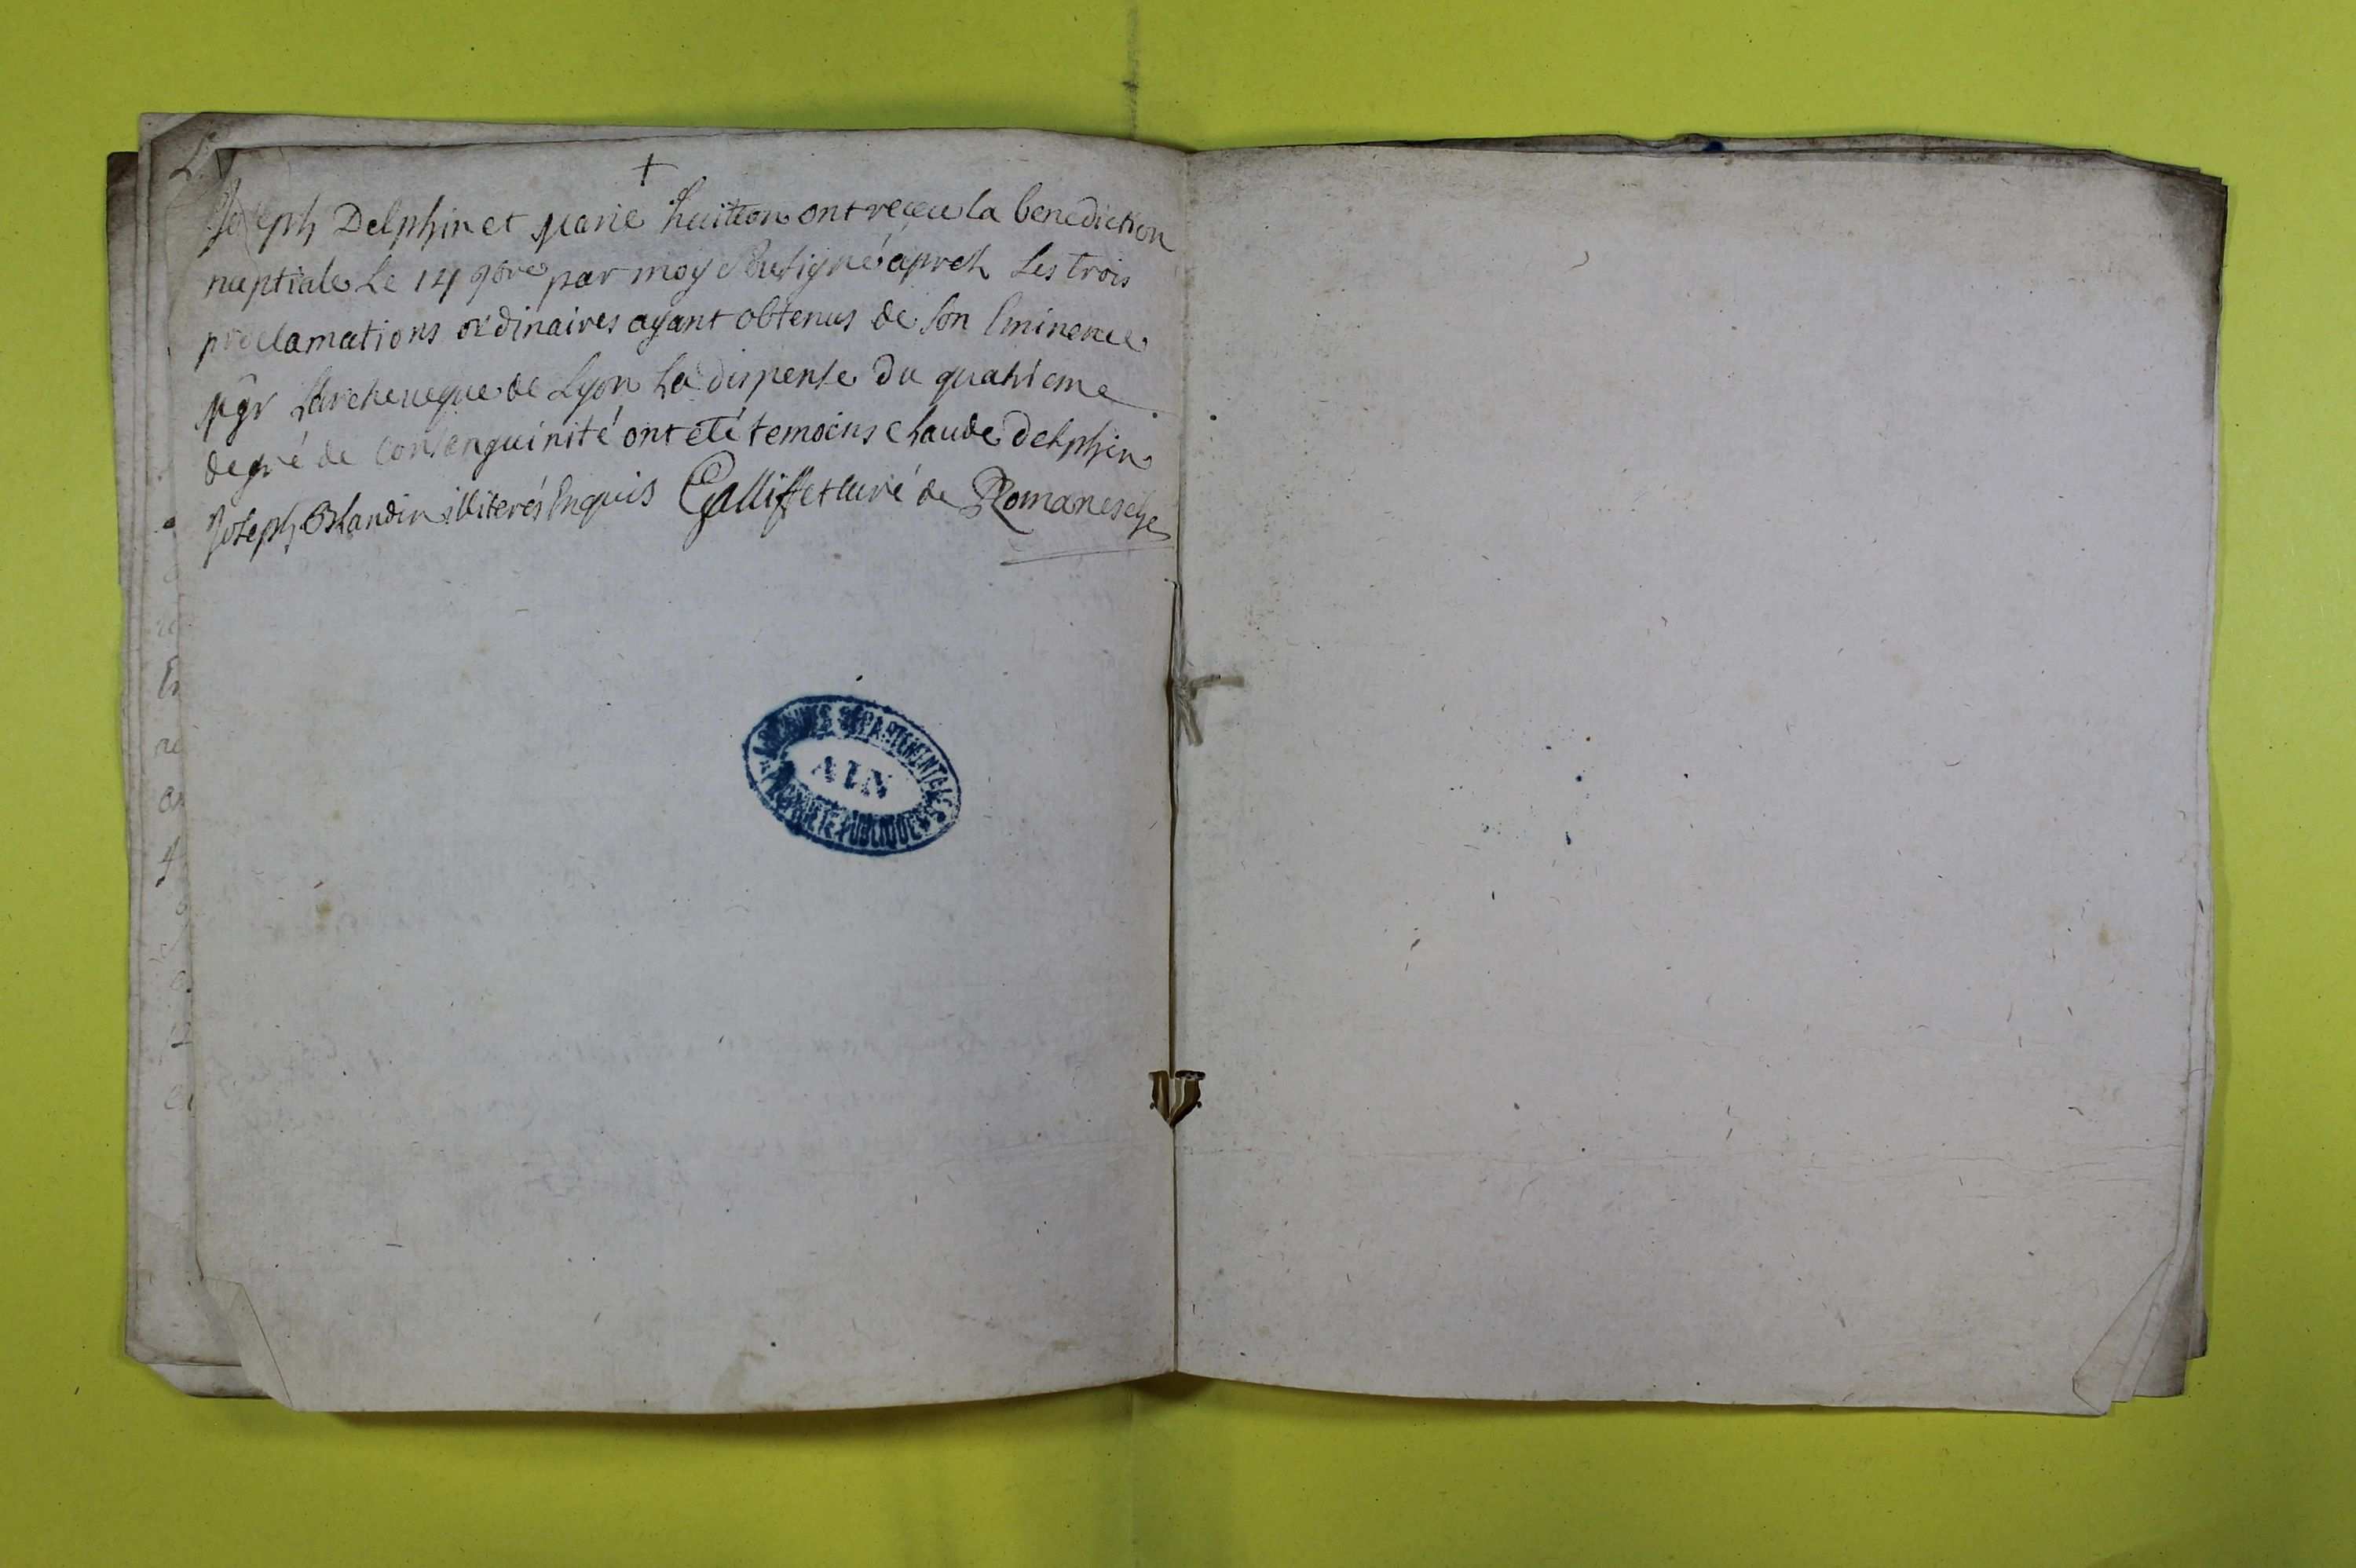 +
Joseph Delphin et Marie huitton ont reçeu la benediction
nuptiale Le 14 9bre par moy Sousigné apres Les trois
proclamations ordinaires ayant obtenus de son Eminence
Mgr Larcheveque de Lyon La dispense du quatrieme
degré de consenguinité ont eté temoins Claude Delphin
Joseph Blandin illiterés Enquis Galliffet curé de Romanesche
ARCHIVES DEPARTEMENTALES
AIN
PROPRIETE PUBLIQUE